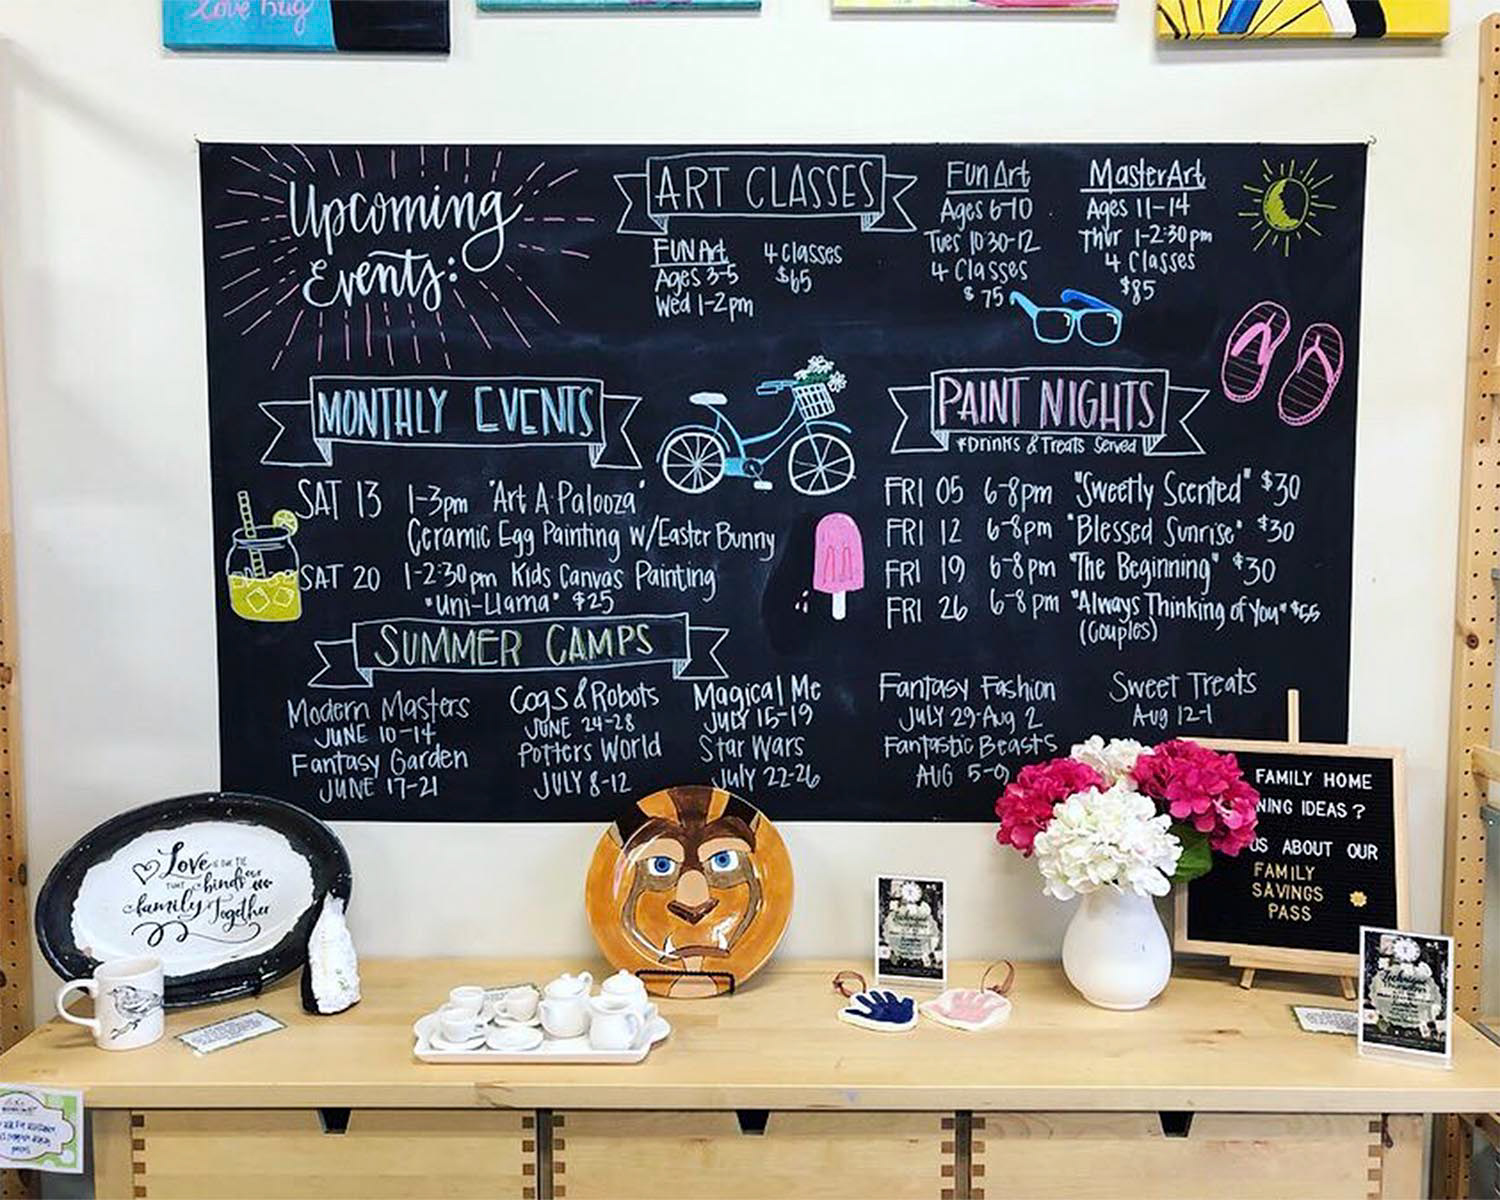 Love Bug
Upcoming
Events:
ART CLASSES
FUN Art
Ages 3-5
Wed 1-2pm
4 classes
$65
Fun Art
Ages 6-10
Tues 10:30-12
4 Classes
$75
MasterArt
Ages 11-14
Thur 1-2:30pm
4 Classes
$85
MONTHLY EVENTS
SAT 13 1-3pm "Art A Palooza"
Ceramic Egg Painting w/Easter Bunny
SAT 20 1-2:30pm Kids Canvas Painting
"Uni-Llama" $25
PAINT NIGHTS
*Drinks & Treats Served
FRI 05 6-8pm "Sweetly Scented" $30
FRI 12 6-8pm "Blessed Sunrise" $30
FRI 19 6-8pm "The Beginning" $30
FRI 26 6-8pm "Always Thinking of You" $55
(Couples)
SUMMER CAMPS
Modern Masters
JUNE 10-14
Fantasy Garden
JUNE 17-21
Cogs & Robots
JUNE 24-28
Potters World
JULY 8-12
Magical Me
JULY 15-19
Star Wars
July 22-26
Fantasy Fashion
JULY 29-Aug 2
Fantastic Beasts
AUG 5-9
Sweet Treats
Aug 12-1
FAMILY HOME
NING IDEAS?
US ABOUT OUR
FAMILY
SAVINGS
PASS
Love is the tie
that binds our
family Together
Technique
Technique